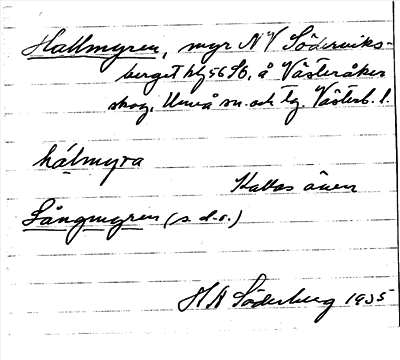 Hallmyren, myr NV Söderviks-
berget hfg 56 St, å Västeråker
skog, Umeå sn. och tg. Västerb. l.
hálmyra
Kallas även
Långmyren (s. d. o.)
H A Söderberg 1935